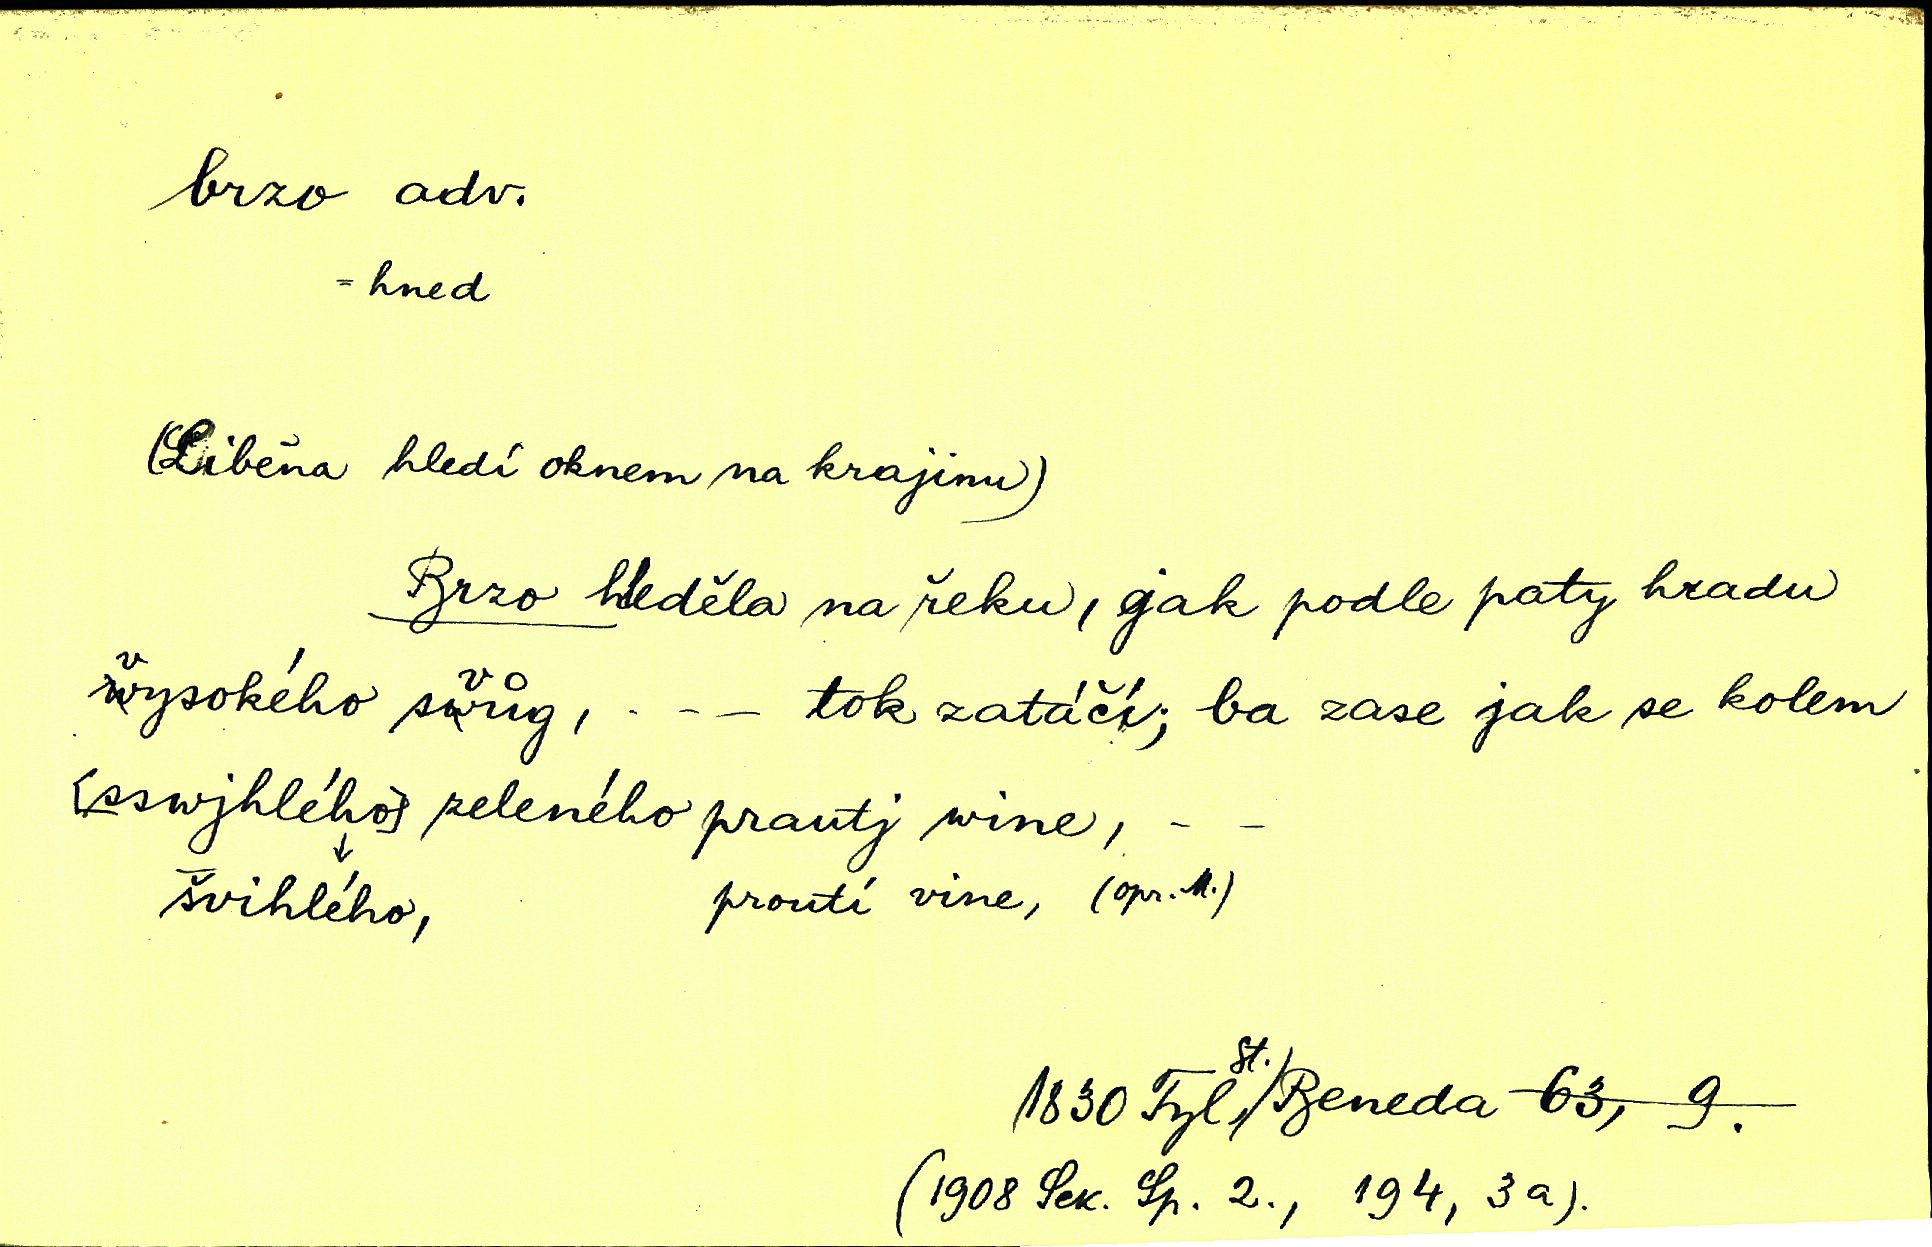 brzo adv.
= hned
(Liběna hledí oknem na krajinu)
Brzo hleděla na řeku, gak podle paty hradu
vysokého svůg, - - - tok zatáčí; ba zase jak se kolem
[sswjhlého] zeleného prautj wine, - -
švihlého, proutí vine, (opr. M.)
1830 Tyl, St./Beneda 63, 9.
(1908 Sek. Sp. 2., 194, 3a).